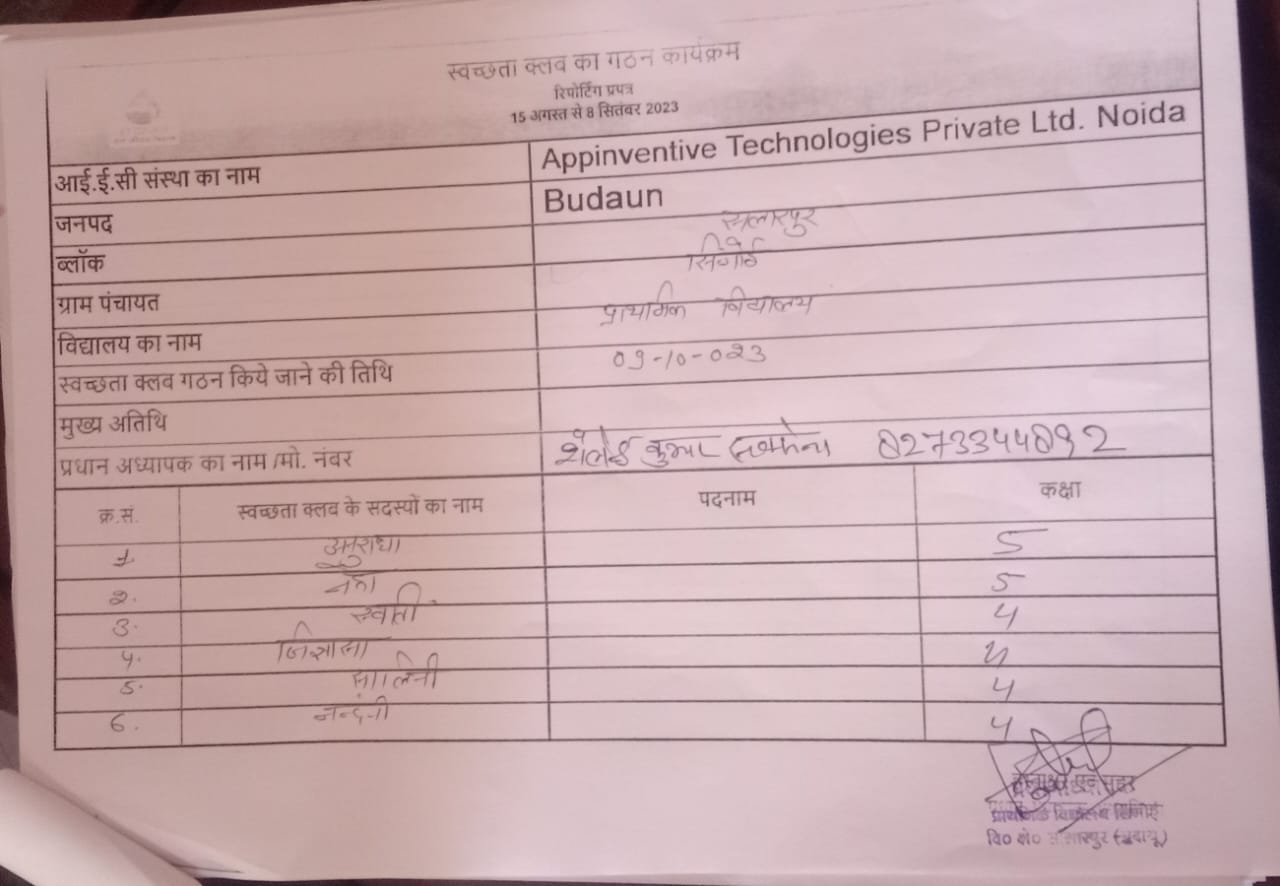 स्वच्छता क्लव का गठन कार्यक्रम
रिपोर्टिंग प्रपत्र
15 अगस्त से 8 सितंबर 2023
आई.ई.सी संस्था का नाम Appinventive Technologies Private Ltd. Noida
जनपद Budaun
ब्लॉक सलारपुर
ग्राम पंचायत
विद्यालय का नाम प्राथमिक विद्यालय
स्वच्छता क्लव गठन किये जाने की तिथि 09-10-023
मुख्य अतिथि
प्रधान अध्यापक का नाम /मो. नंबर कुमार सक्सेना
क्र.सं. स्वच्छता क्लव के सदस्यों का नाम पदनाम कक्षा
1. अनुराधा 5
२. 5
3. स्वाती 4
4. जिज्ञासा 4
5. शालिनी 4
6. नन्दनी 4
प्राथमिक विद्यालय
वि० क्षे० सलारपुर (बदायू)